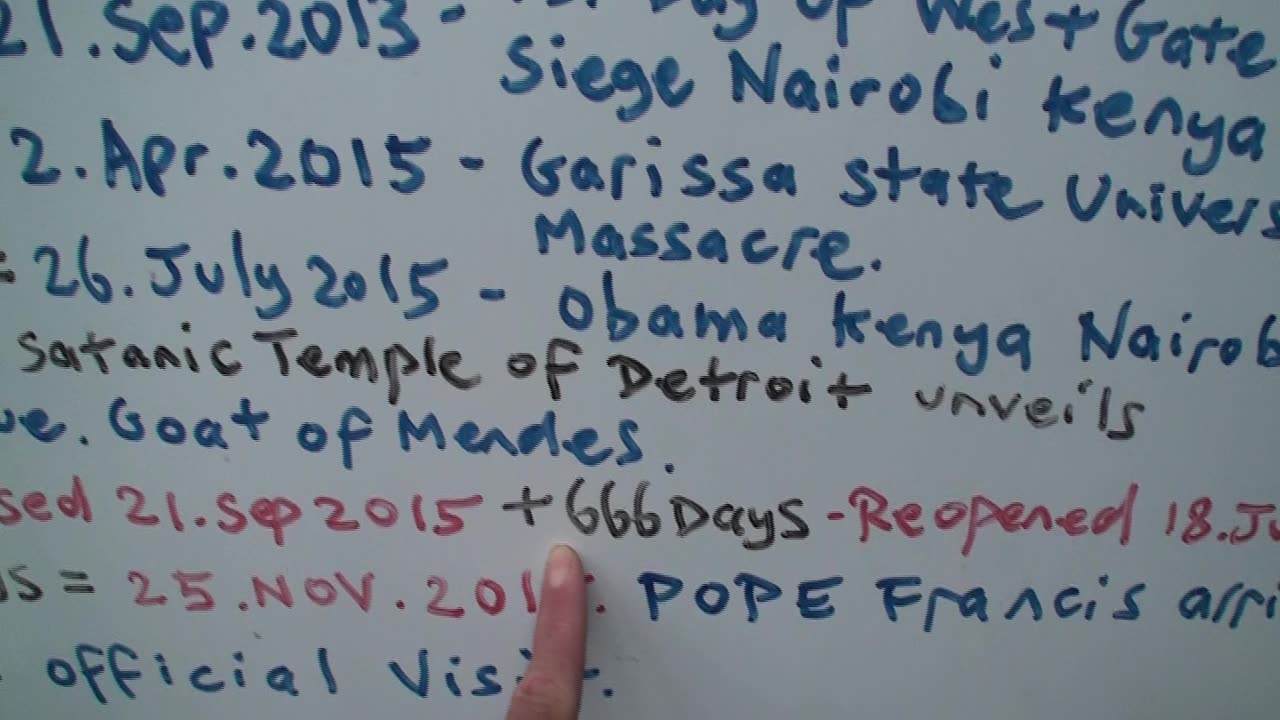 21.Sep.2013 - Day of West Gate
Siege Nairobi Kenya
2.Apr.2015 - Garissa state Univers
Massacre.
= 26.July 2015 - Obama Kenya Nairob
Satanic Temple of Detroit unveils
ue. Goat of Mendes.
sed 21.Sep 2015 + 666 Days - Reopened 18.Ju
s = 25.NOV.201 . POPE Francis arri
official Visit.